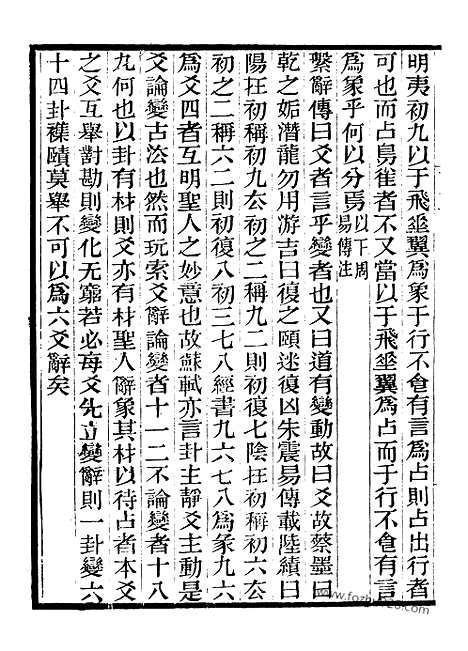 明夷初九以于飛垂翼爲象于行不食有言爲占則占出行者
可也而占鳥雀者不又當以于飛垂翼爲占而于行不食有言
爲象乎何以分象以下周易傳注
繫辭傳曰爻者言乎變者也又曰道有變動故曰爻故蔡墨曰
乾之姤潛龍勿用游吉曰復之頤迷復凶朱震易傳載陸績曰
陽在初稱初九公初之二稱九二則初復七陰在初稱初六公
初之二稱六二則初復八初三七八經書九六七八爲象九六
爲爻四者互明聖人之妙意也故蘇軾亦言卦主靜爻主動是
爻論變古法也然而玩索爻辭論變者十一二不論變者十八
九何也以卦有材則爻亦有材聖人辭象其材以待占者本爻
之爻互舉對勘則變化无窮若必每爻先立變辭則一卦變六
十四卦襍賾莫舉不可以爲六爻辭矣